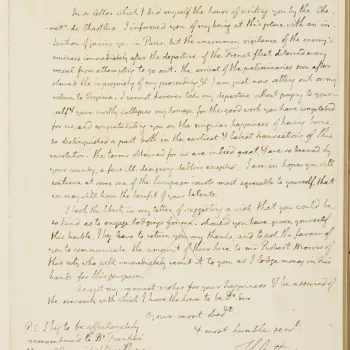 In a letter which I did myself the honor of writing you by the Che-
valr. de Chastlux I informed you of my being at this place with an in-
tention of joining you in Paris. but the uncommon vigilance of the enemy's
cruisers immediately after the departure of the French fleet deterred every
vessel from attempting to go out. the arrival of the preliminaries soon after
shewed the impropriety of my proceeding & I am just now setting out on my
return to Virginia. I cannot however take my departure without paying to your-
self & your worthy collegues my homage for the good work you have completed
for us, and congratulating you on the singular happiness of having borne
so distinguished a part both in the earliest & latest transactions of this
revolution. the terms obtained for us are indeed great & are so deemed by
your country, a few ill designing debtors excepted. I am in hopes you will
continue at some one of the European courts most agreeable to yourself, that
we may still have the benefit of your talents.
I took the liberty in my letter of suggesting a wish that you would be
so kind as to engage lodgings for me. should you have given yourself
this trouble I beg leave to return you my thanks, and to ask the favour of
you to communicate the amount of to mr Robert Morris of
this city who will immediately remit it to you as I lodge money in his
hands for this purpose.
Accept my warmest wishes for your happiness & be assured of
the sincerity with which I have the honor to be Dr Sir
Your most obedt
& most humble servt
P.S. I beg to be affectionately
remembered to Dr Franklin